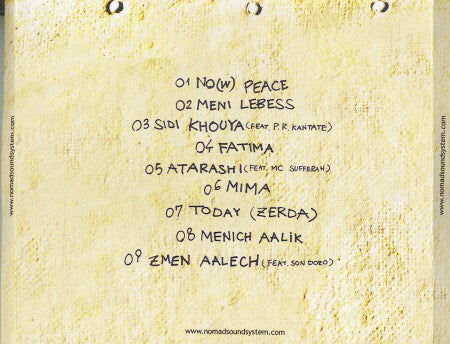 01 NO(W) PEACE
02 MENI LEBESS
03 SIDI KHOUYA (FEAT. P.R. KANTATE)
04 FATIMA
05 ATARASHI (FEAT. MC SUFFERAH)
06 MIMA
07 TODAY (ZERDA)
08 MENICH AALIK
09 ZMEN AALECH (FEAT. SON DORO)
www.nomadsoundsystem.com
www.nomadsoundsystem.com
www.nomadsoundsystem.com